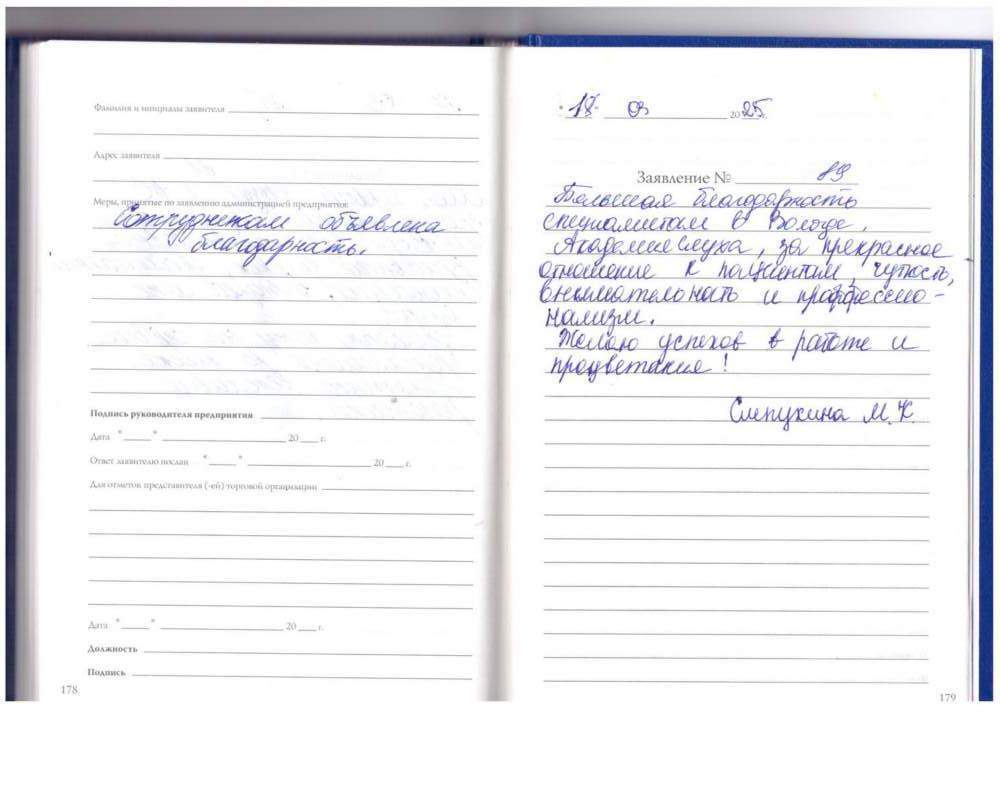 Фамилия и инициалы заявителя
Адрес заявителя
Меры, принятые по заявлению администрацией предприятия:
Сотрудникам объявлена
благодарность.
Подпись руководителя предприятия
Дата " " 20 г.
Ответ заявителю послан " " 20 г.
Для отметок представителя (-ей) торговой организации
Дата " " 20 г.
Должность
Подпись
178
" 03 2025
Заявление № 89
Большая благодарность
специалистам в Вологде.
Академие слуха, за прекрасное
отношение к пациентам, чуткость,
внимательность и проффессио-
нализм.
Желаю успехов в работе и
процветания!
Слепухина М.К.
179